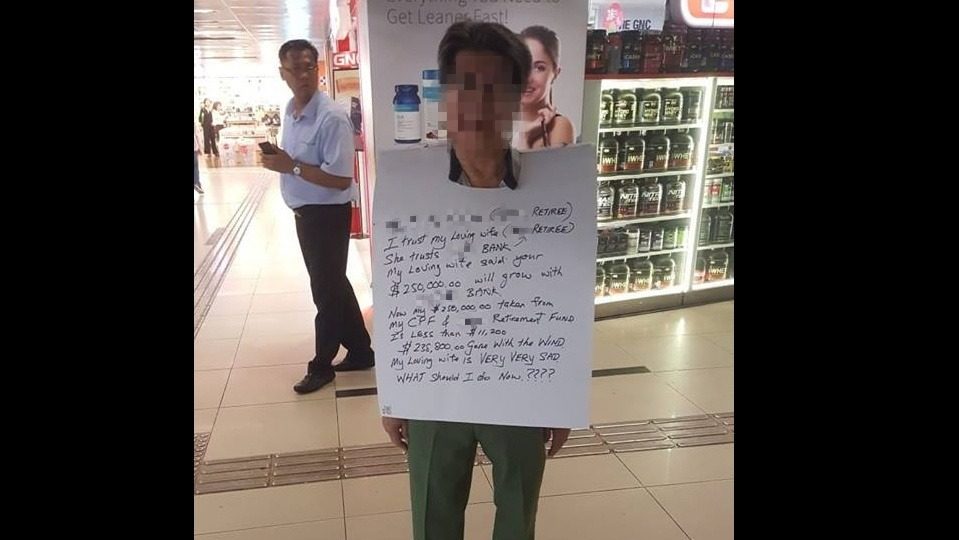 Everything You Need to
Get Leaner Fast!
GNC
THE GNC
WHEY
WHEY
( RETIREE)
I trust my Loving wife ( RETIREE)
She trusts BANK
My Loving wife said your
$250,000.00 will grow with
BANK
Now my $250,000.00 taken from
my CPF & Retirement FUND
Is Less than $11,200
$238,800.00 Gone With the WIND
My Loving wife is VERY VERY SAD
WHAT Should I do Now ????